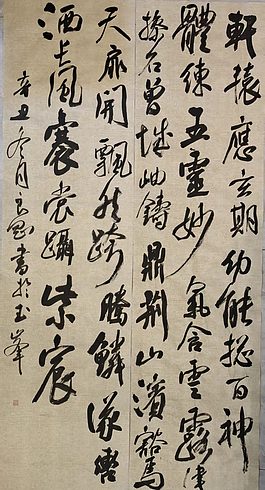 軒轅應玄期幼能揔百神
體練五靈妙氣含雲露津
摻石曾城岫鑄鼎荊山濱豁焉
天扉開飄然跨騰鱗儀轡
洒長風褰裳躡紫宸
辛丑冬月良書於玉峯